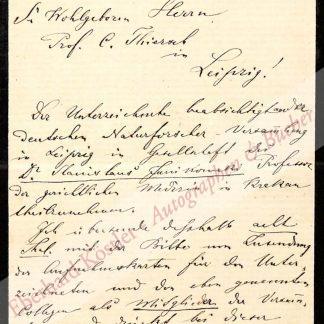 Sr Wohlgeboren Herrn
Prof. C. Thiersch
in
Leipzig!
Der Unterzeichnete beabsichtigt an der
deutschen Naturforscher-Versammlung
in Leipzig in Gesellschaft des
Dr Stanislaus Professor
der gerichtlichen Medicin in Krakau
theilzunehmen.
Ich übersende deshalb acht
Thlr. mit der Bitte um Zusendung
der Aufnahmskarten für den Unter
zeichneten und den eben genannten
Collegen als Mitglieder der Versamm
bei dieser
Eberhard Köstler Autographen & Bücher